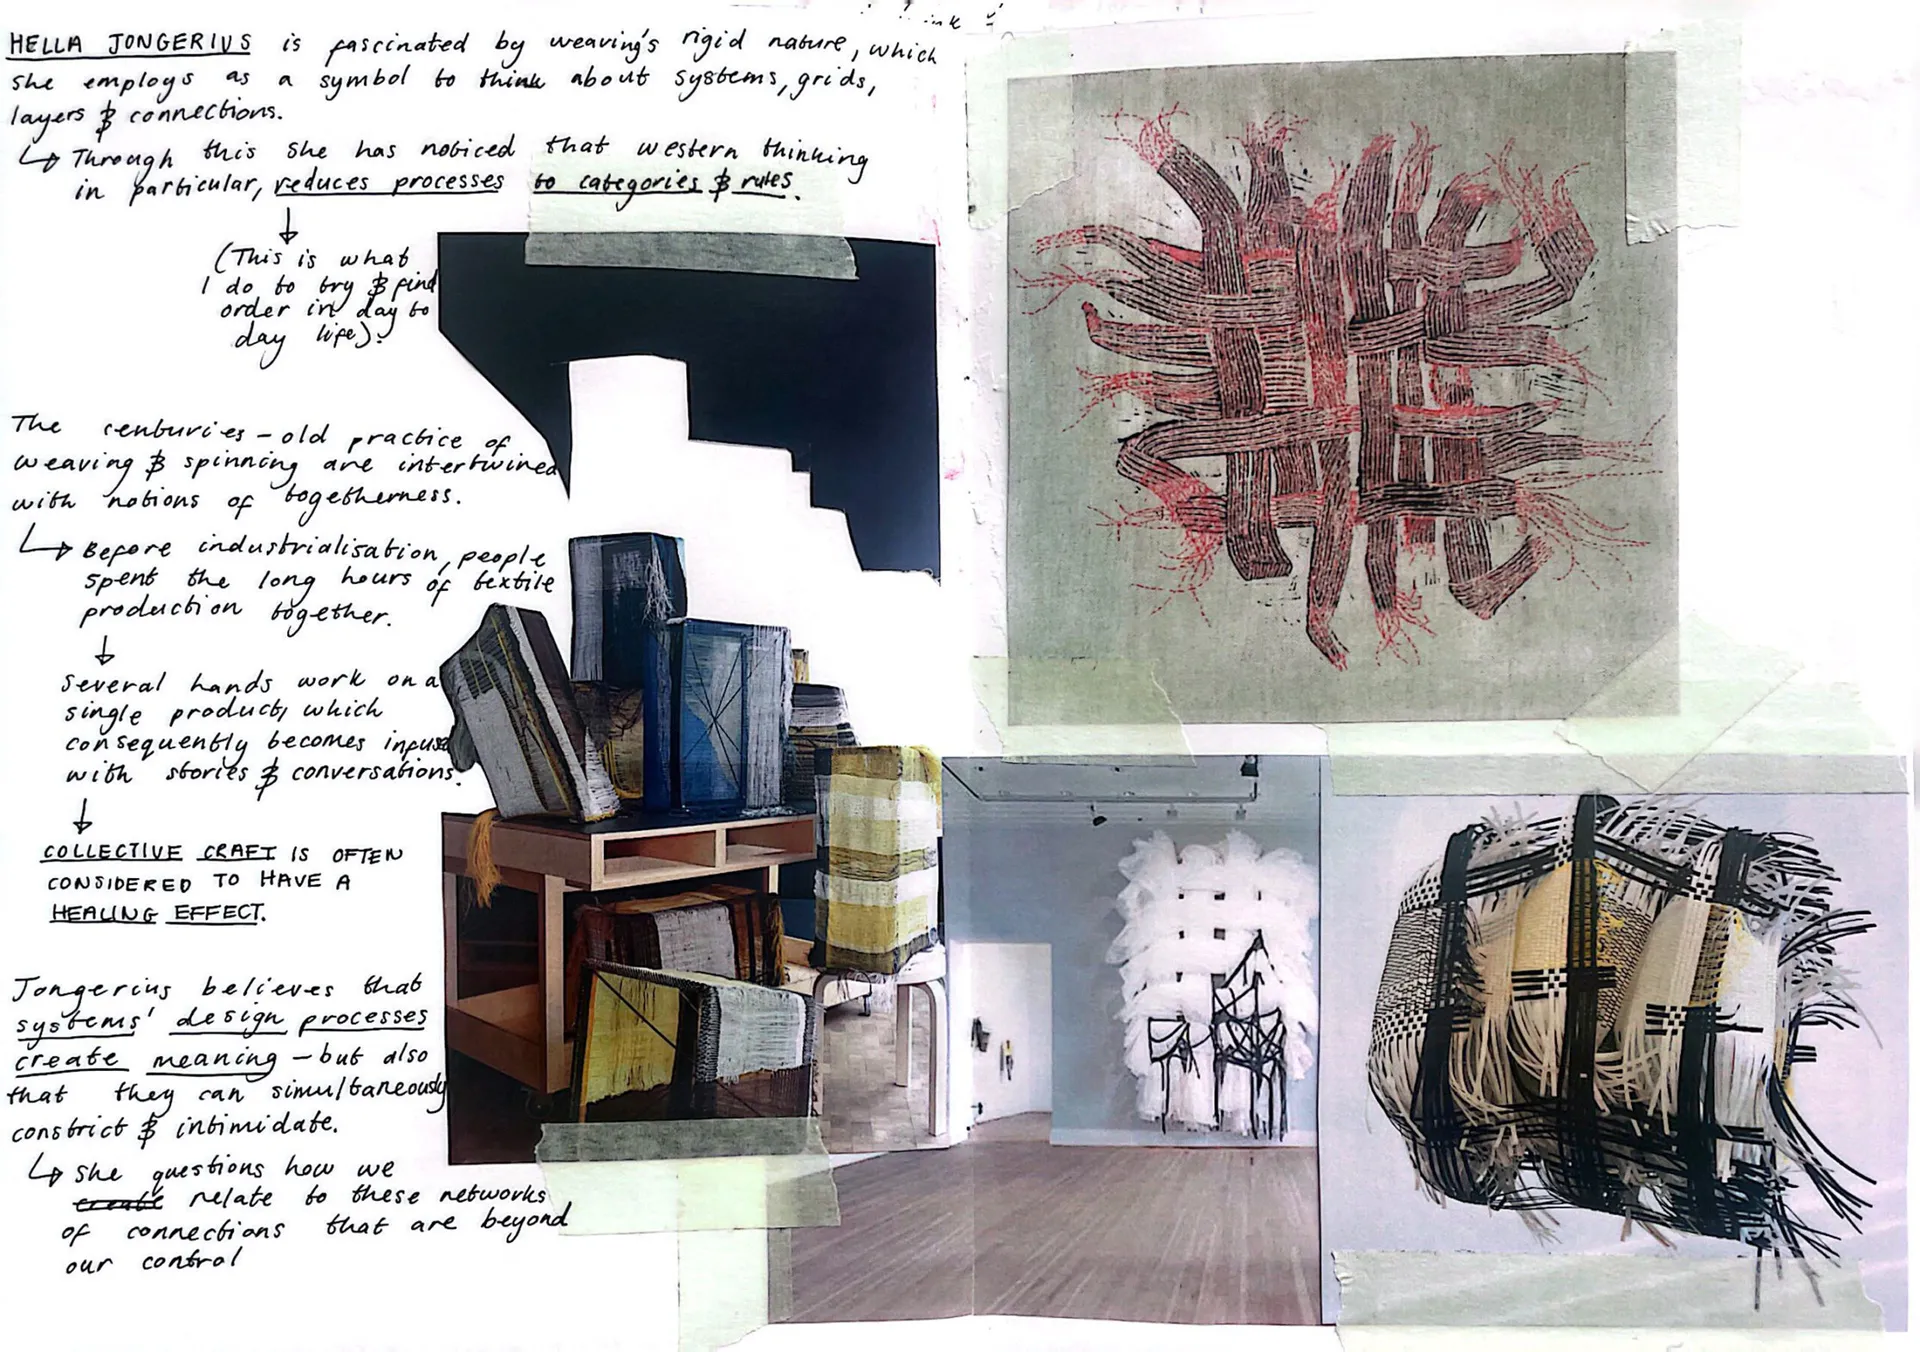 HELLA JONGERIUS is fascinated by weaving's rigid nature, which
she employs as a symbol to think about systems, grids,
layers & connections.
↳ Through this she has noticed that western thinking
in particular, reduces processes to categories & rules.
↓
(This is what
I do to try & find
order in day to
day life).
The centuries-old practice of
weaving & spinning are intertwined
with notions of togetherness.
↳ Before industrialisation, people
spent the long hours of textile
production together.
↓
Several hands work on a
single product, which
consequently becomes infuse
with stories & conversations.
↓
COLLECTIVE CRAFT IS OFTEN
CONSIDERED TO HAVE A
HEALING EFFECT.
Jongerius believes that
systems' design processes
create meaning – but also
that they can simultaneously
constrict & intimidate.
↳ She questions how we
create relate to these networks
of connections that are beyond
our control